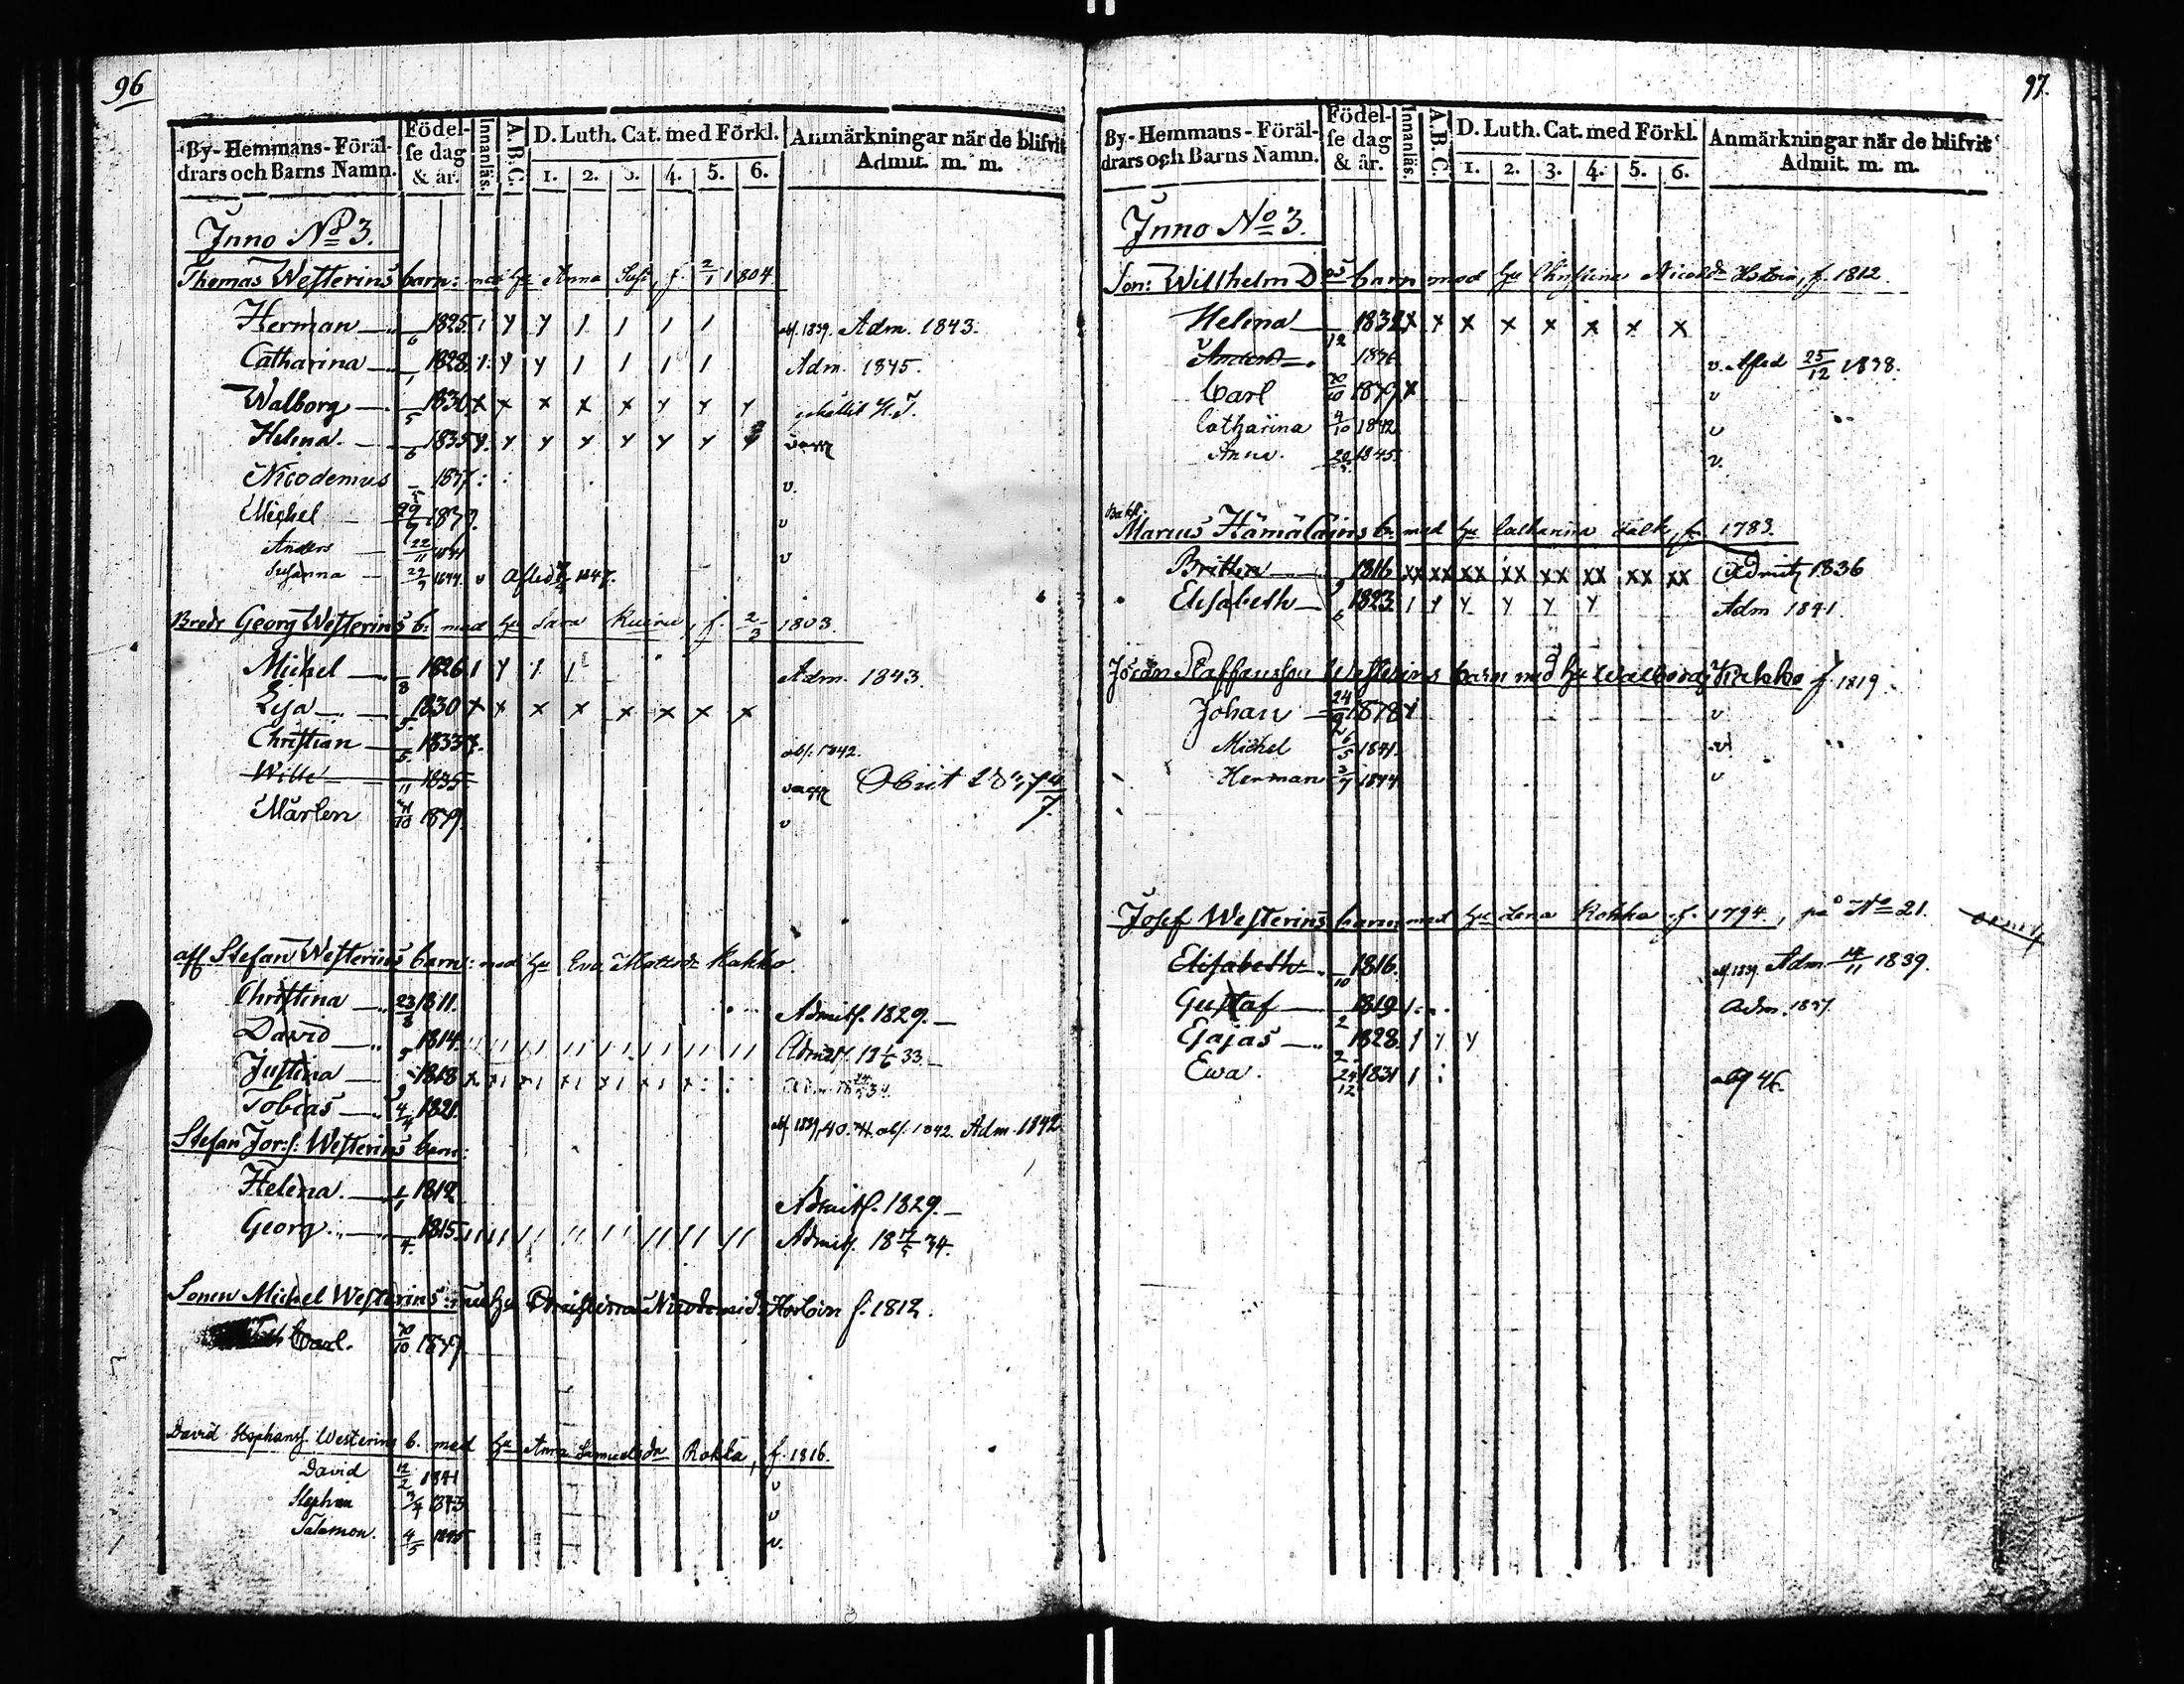 96
By-Hemmans-Föräl-
drars och Barns Namn.
Födel-
se dag
& år.
Innanläs.
A.B.C.
D. Luth. Cat. med Förkl.
1. 2. 3. 4. 5. 6.
Anmärkningar när de blifvit
Admit. m. m.
Inno No 3.
Thomas Westerins barn: med hu Anna Susi, f. 2/1 1804.
Herman 6 1825 1 y y 1 1 1 1 abs. 1839. Adm. 1843.
Catharina 1 1828 1. y y 1 1 1 1 Adm. 1845.
Walborg 5 1830 x x x x x y y y
Helena. 6 1835 y. y y x y y y
Nicodemus 1837 v.
Michel 29/9 v
Anders 22/11 1841 v
Susanna 29/9 1844. v Afled 1847.
Brodr Georg Westerins b: med hu Sara f. 2/3 1803.
Michel 8 1826 1 y 1 1 Adm. 1843.
Eja 5 1830 x x x x x x x x
Christian 5 1833 abs: 1842.
Wille 11 1835 Obiit
Marlen 10 v
aff Stefan Westerins barn: med hu Eva Mattsdr Kakko.
Christina 23/8 1811. Admitt. 1829.
David 5 1814. 11 11 11 11 11 11 11 Admitt. 33.
Justina 9 1818
Tobias 4/4 1821. abs 1839, 40. abs: 1842. Adm. 1842
Stefan Jor:s: Westerins barn:
Helena. 1/1 1812 Admitt. 1829.
Georg 4. 1815. 11 11 11 11 11 11 11 Admitt. 18 17/5 34.
Sonen Michel Westerins med hu Christina Nicodemidr Horbin f. 1812.
Carl. 10
David Stephans. Westerins b. med hu Anna Samuelsdr Rokka, f. 1816.
David 12/2 1841 v
Stephan 3/4 1843 v
Salomon. 4/5 1845 v.
97.
By-Hemmans-Föräl-
drars och Barns Namn.
Födel-
se dag
& år.
Innanläs.
A.B.C.
D. Luth. Cat. med Förkl.
1. 2. 3. 4. 5. 6.
Anmärkningar när de blifvit
Admit. m. m.
Inno No 3.
Son: Willhelm Dos barn med hu Christina f. 1812.
Helena 12 1832 x x x x x x x x
1836 v. Afled 25/12 1838.
Carl 10 x v
Catharina 4/10 1842 v
Anna. 20 1845. v.
Marcus Hämäläins b: med hu Catharina f. 1783.
Britta 9 1816 xx xx xx xx xx xx xx xx Admitt 1836
Elisabeth 6 1823 1 y y y y y Adm 1841.
Jöran Staffansson Westerins barn med hu Walborg Kakko f 1819
Johan 24/2 v
Michel 6/5 1841. v
Herman 3/7 1844 v
Josef Westerins barn med hu Lena Rokka f. 1794., på No 21.
Elisabeth 10 1816. abs. 1839. Adm. 14/11 1839.
Gustaf 2 1819 1 Adm. 1837.
Esajas 2 1828. 1 y y
Ewa. 24/12 1831 1 abs 46.